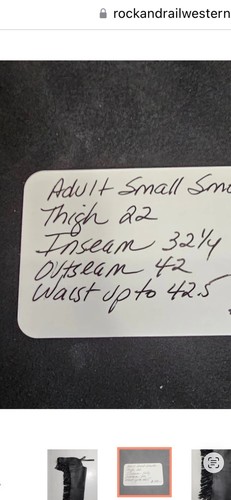 rockandrailwestern
Adult Small Sma
Thigh 22
Inseam 32 1/4
Outseam 42
Waist up to 42.5